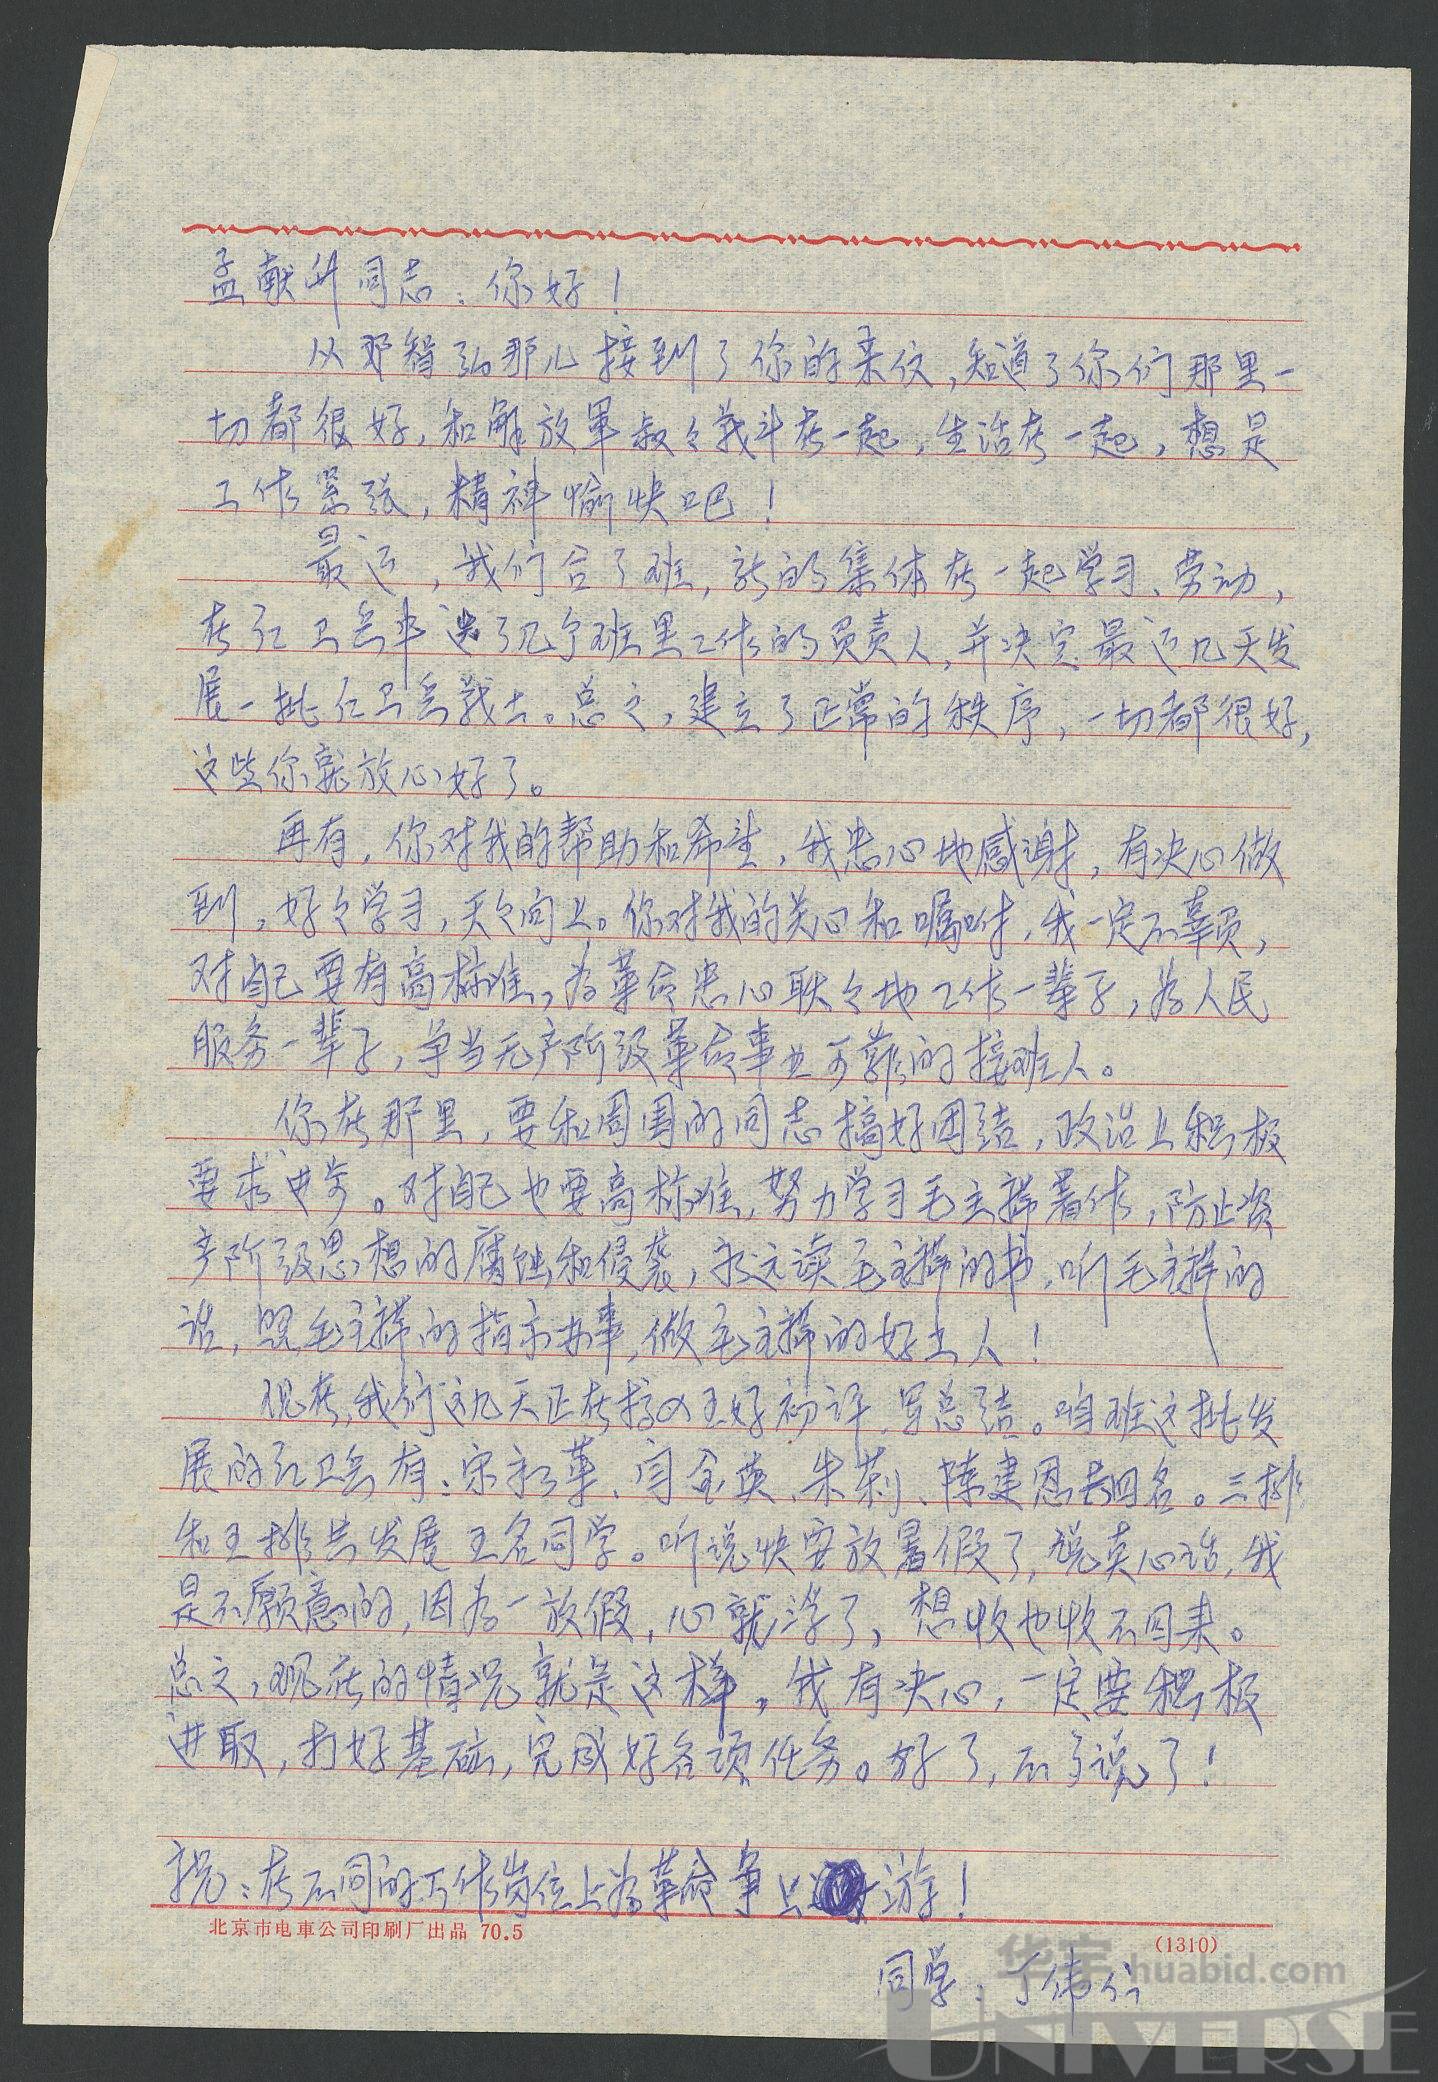 孟献升同志：你好！
从邓智弘那儿接到了你的来信，知道了你们那里一
切都很好，和解放軍叔々战斗在一起，生活在一起，想是
工作紧张，精神愉快吧！
最近，我们合了班，新的集体在一起学习、劳动，
在红卫兵中选了几个班里工作的负责人，并决定最近几天发
展一批红卫兵战士。总之，建立了正常的秩序，一切都很好，
这些你就放心好了。
再有，你对我的帮助和希望，我忠心地感谢，有决心做
到，好々学习，天々向上。你对我的关心和嘱咐，我一定不辜负，
对自己要有高标准，为革命忠心耿々地工作一辈子，为人民
服务一辈子，争当无产阶级革命事业可靠的接班人。
你在那里，要和周围的同志搞好团结，政治上积极
要求进步。对自己也要高标准，努力学习毛主席著作，防止资
产阶级思想的腐蚀和侵袭，永远读毛主席的书，听毛主席的
话，照毛主席的指示办事，做毛主席的好工人！
现在，我们这几天正在搞四五好初评，写总结。咱班这批发
展的红卫兵有：宋永革、闫金英、朱莉、陈建恩共四名。三排
和五排共发展五名同学。听说快要放暑假了，说真心话，我
是不愿意的，因为一放假，心就浮了，想收也收不回来。
总之，现在的情况就是这样，我有决心，一定要积极
进取，打好基础，完成好各项任务。好了，不多说了！
祝：在不同的工作岗位上为革命争上游！
北京市电車公司印刷厂出品 70.5
(1310)
同学：丁伟
华宇 huabid.com
UNIVERSE